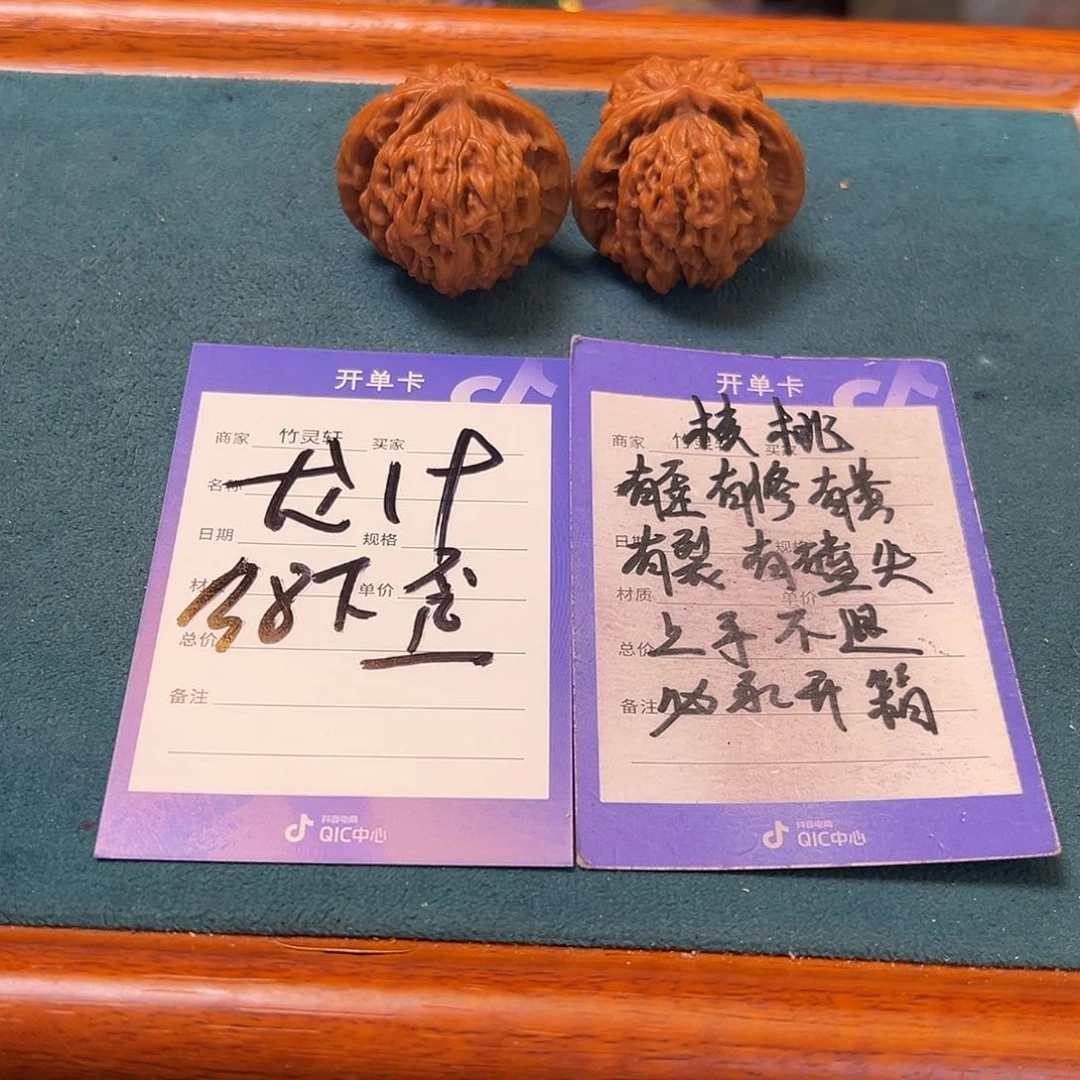 开单卡
商家 竹灵轩 买家
名称
龙计
日期 规格
材 单价
38下歪
总价
备注
抖音电商
QIC中心
开单卡
核桃
商家 竹灵 买家
有歪有修有黄
日期 规格
有裂有磕尖
材质 单价
总价
上手不退
备注
必录开箱
抖音电商
QIC中心